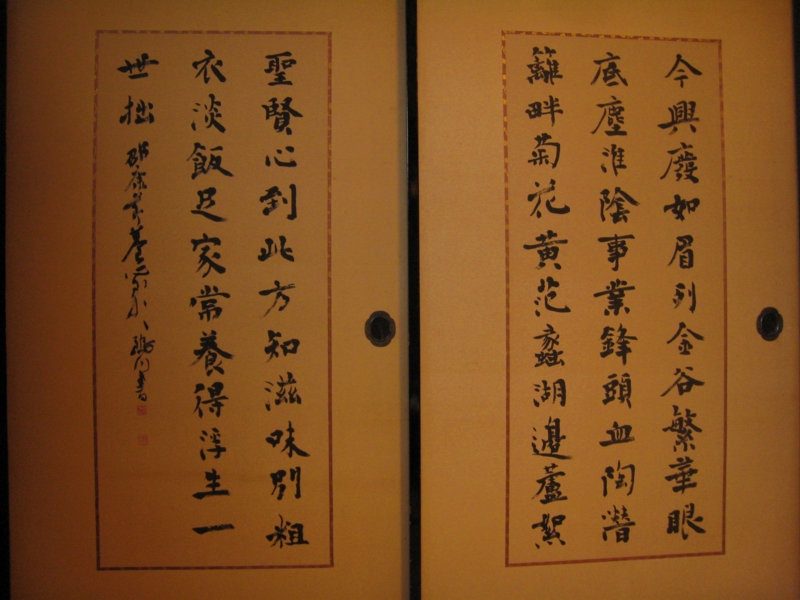 今興廢如眉列金谷繁華眼
底塵淮陰事業鋒頭血陶潛
籬畔菊花黃范蠡湖邊蘆絮
聖賢心到此方知滋味別粗
衣淡飯足家常養得浮生一
世拙 邵康節 書